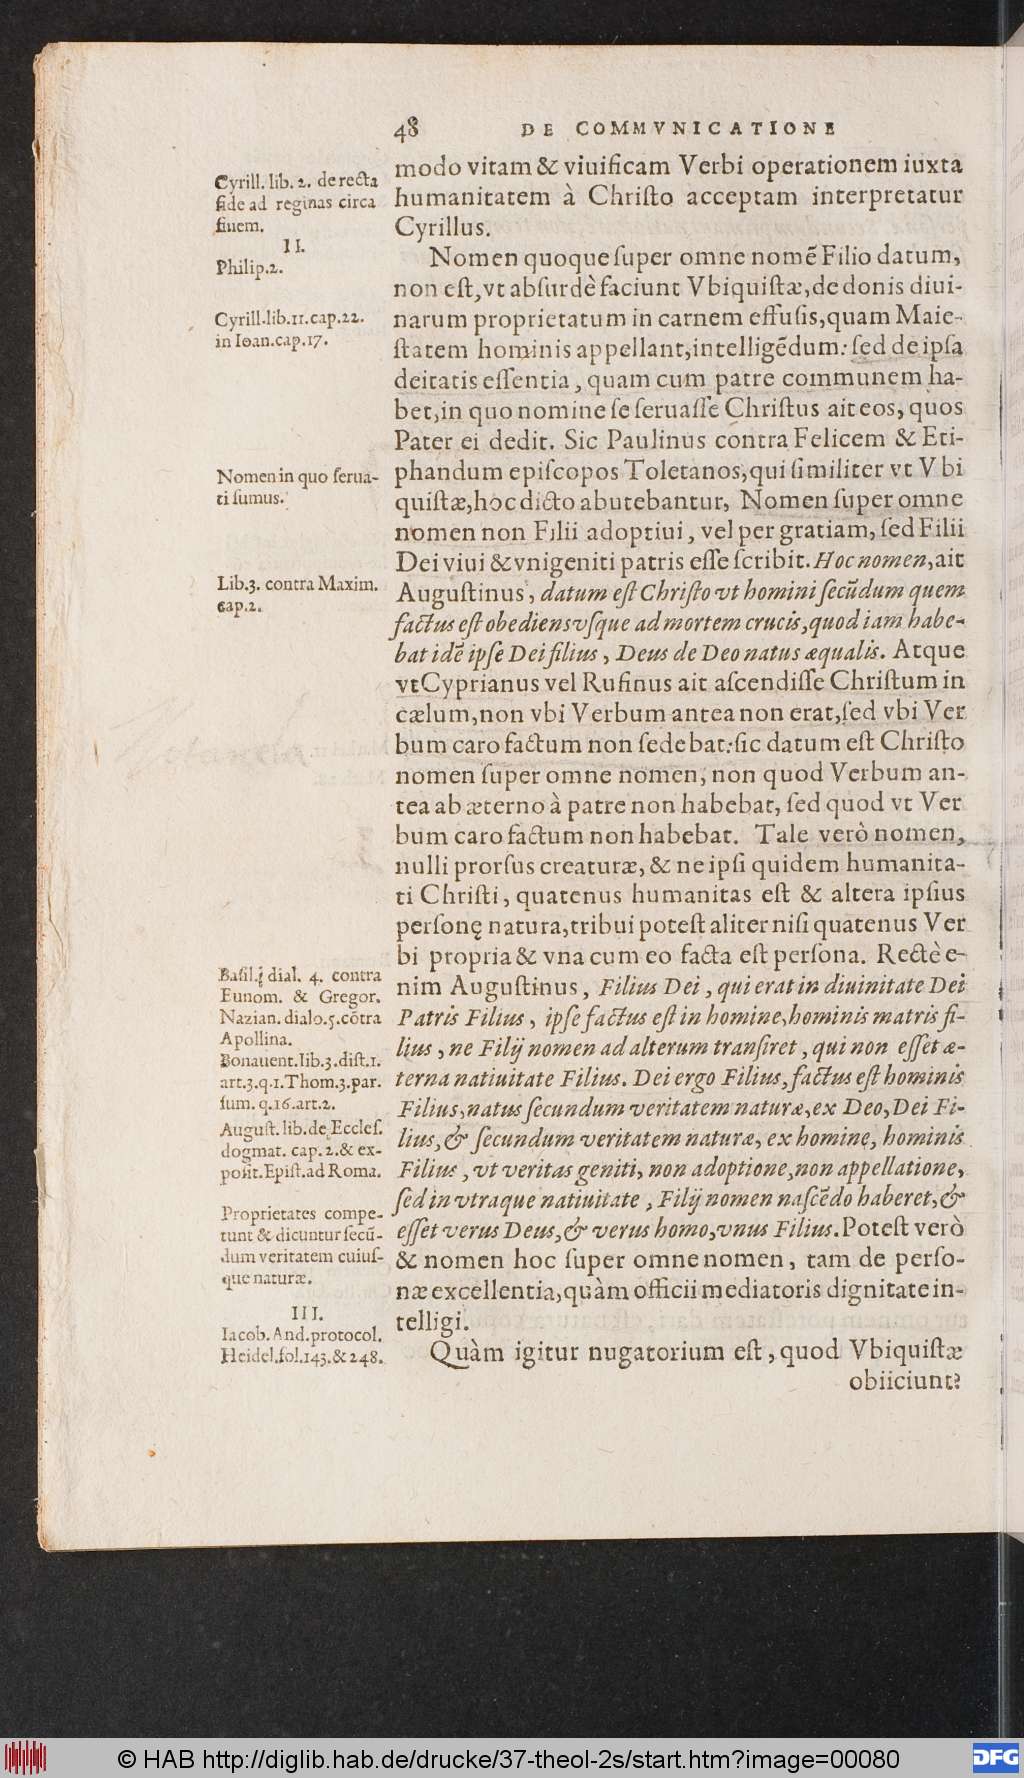 48 DE COMMVNICATIONE
modo vitam & viuificam Verbi operationem iuxta
humanitatem à Chriſto acceptam interpretatur
Cyrillus.
Nomen quoque ſuper omne nomē Filio datum,
non eſt, vt abſurdè faciunt Vbiquiſtæ, de donis diui-
narum proprietatum in carnem effuſis, quam Maie-
ſtatem hominis appellant, intelligēdum: ſed de ipſa
deitatis eſſentia, quam cum patre communem ha-
bet, in quo nomine ſe ſeruaſſe Chriſtus ait eos, quos
Pater ei dedit. Sic Paulinus contra Felicem & Eti-
phandum epiſcopos Toletanos, qui ſimiliter vt Vbi
quiſtæ, hoc dicto abutebantur, Nomen ſuper omne
nomen non Filii adoptiui, vel per gratiam, ſed Filii
Dei viui & vnigeniti patris eſſe ſcribit. Hoc nomen, ait
Auguſtinus, datum eſt Chriſto vt homini ſecūdum quem
factus eſt obediens vſque ad mortem crucis, quod iam habe-
bat idē ipſe Dei filius, Deus de Deo natus æqualis. Atque
vt Cyprianus vel Rufinus ait aſcendiſſe Chriſtum in
cælum, non vbi Verbum antea non erat, ſed vbi Ver
bum caro factum non ſedebat: ſic datum eſt Chriſto
nomen ſuper omne nomen, non quod Verbum an-
tea ab æterno à patre non habebat, ſed quod vt Ver
bum caro factum non habebat. Tale verò nomen,
nulli prorſus creaturæ, & ne ipſi quidem humanita-
ti Chriſti, quatenus humanitas eſt & altera ipſius
perſonę natura, tribui poteſt aliter niſi quatenus Ver
bi propria & vna cum eo facta eſt perſona. Rectè e-
nim Auguſtinus, Filius Dei, qui erat in diuinitate Dei
Patris Filius, ipſe factus eſt in homine, hominis matris fi-
lius, ne Filij nomen ad alterum tranſiret, qui non eſſet æ-
terna natiuitate Filius. Dei ergo Filius, factus eſt hominis
Filius, natus ſecundum veritatem naturæ, ex Deo, Dei Fi-
lius, & ſecundum veritatem naturæ, ex homine, hominis
Filius, vt veritas geniti, non adoptione, non appellatione,
ſed in vtraque natiuitate, Filij nomen naſcēdo haberet, &
eſſet verus Deus, & verus homo, vnus Filius. Poteſt verò
& nomen hoc ſuper omne nomen, tam de perſo-
næ excellentia, quàm officii mediatoris dignitate in-
telligi.
Quàm igitur nugatorium eſt, quod Vbiquiſtæ
obiiciunt?
Cyrill. lib. 2. de recta
fide ad reginas circa
finem.
II.
Philip. 2.
Cyrill. lib. 11. cap. 22.
in Ioan. cap. 17.
Nomen in quo ſerua-
ti ſumus.
Lib. 3. contra Maxim.
cap. 2.
Baſil. dial. 4. contra
Eunom. & Gregor.
Nazian. dialo. 5. cōtra
Apollina.
Bonauent. lib. 3. diſt. 1.
art. 3. q. 1. Thom. 3. par.
ſum. q. 16. art. 2.
Auguſt. lib. de Eccleſ.
dogmat. cap. 2. & ex-
poſit. Epiſt. ad Roma.
Proprietates compe-
tunt & dicuntur ſecū-
dum veritatem cuiuſ-
que naturæ.
III.
Iacob. And. protocol.
Heidel. fol. 143. & 248.
© HAB http://diglib.hab.de/drucke/37-theol-2s/start.htm?image=00080
DFG